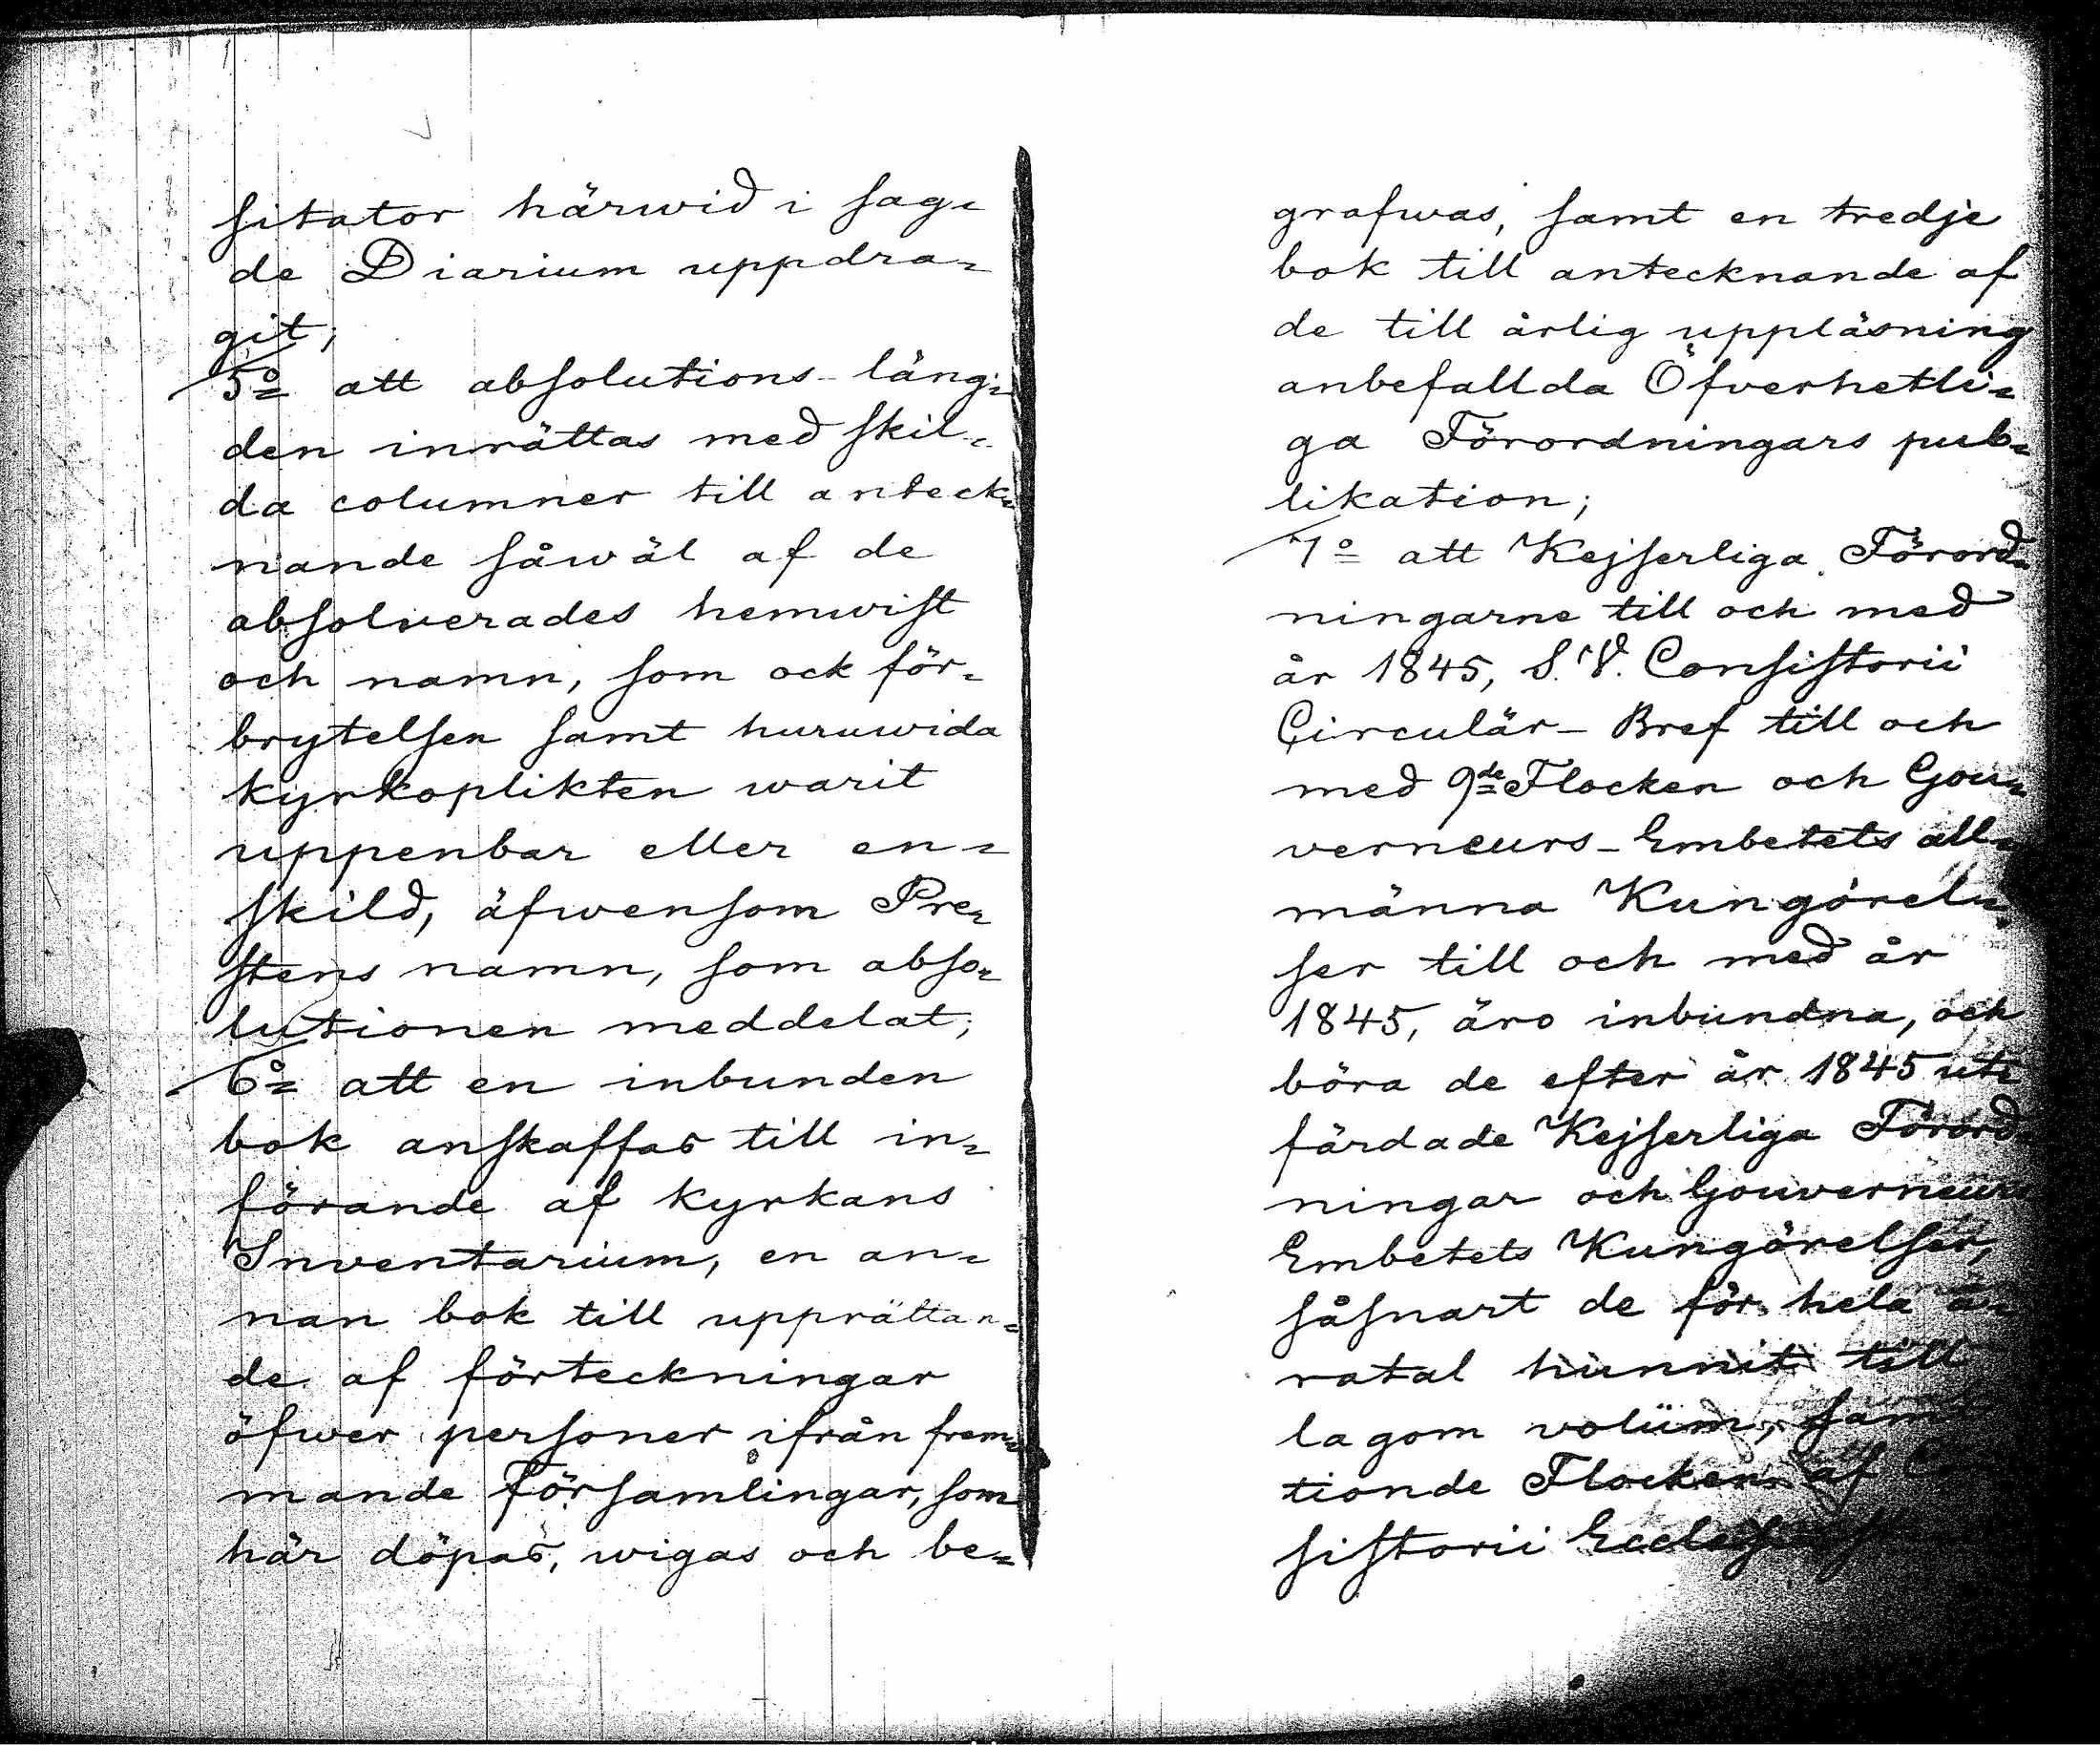 sitator härwid i sag-
de Diarium uppdra-
git;
5o att absolutions-läng-
den inrättas med skil-
da columner till anteck-
nande såwäl af de
absolverades hemwist
och namn, som ock för-
brytelsen samt huruwida
kyrkoplikten warit
uppenbar eller en-
skild, äfwensom Pre-
stens namn, som abso-
lutionen meddelat;
6o att en inbunden
bok anskaffas till in-
förande af kyrkans
Inventarium, en an-
nan bok till upprättan-
de af förteckningar
öfwer personer ifrån frem-
mande församlingar, som
här döpas, wigas och be-
grafwas, samt en tredje
bok till antecknande af
de till årlig uppläsning
anbefallda Öfverhetli-
ga Förordningars pub-
likation;
7o att Kejserliga Förord-
ningarne till och med
år 1845, S. V. Consistorii
Circulär-Bref till och
med 9de Flocken och Gou-
verneurs-Embetets all-
männa Kungörel-
ser till och med år
1845, äro inbundna, och
böra de efter år 1845 ut-
färdade Kejserliga Förord-
ningar och Gouverneurs
Embetets Kungörelser,
såsnart de för hela å-
ratal hunnit till
lagom volüm, samt
tionde Flocken af
sistorii